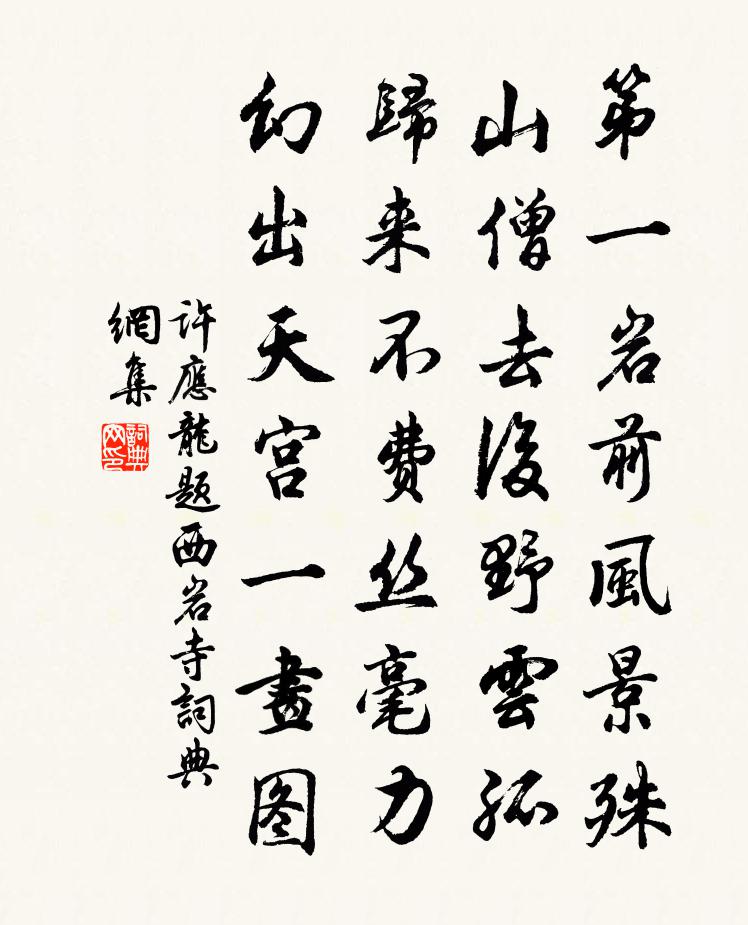 第一岩前風景殊
山僧去後野雲孤
歸来不费丝毫力
幻出天宫一畫图
許應龍題西岩寺詞典
網集
詞典
网印